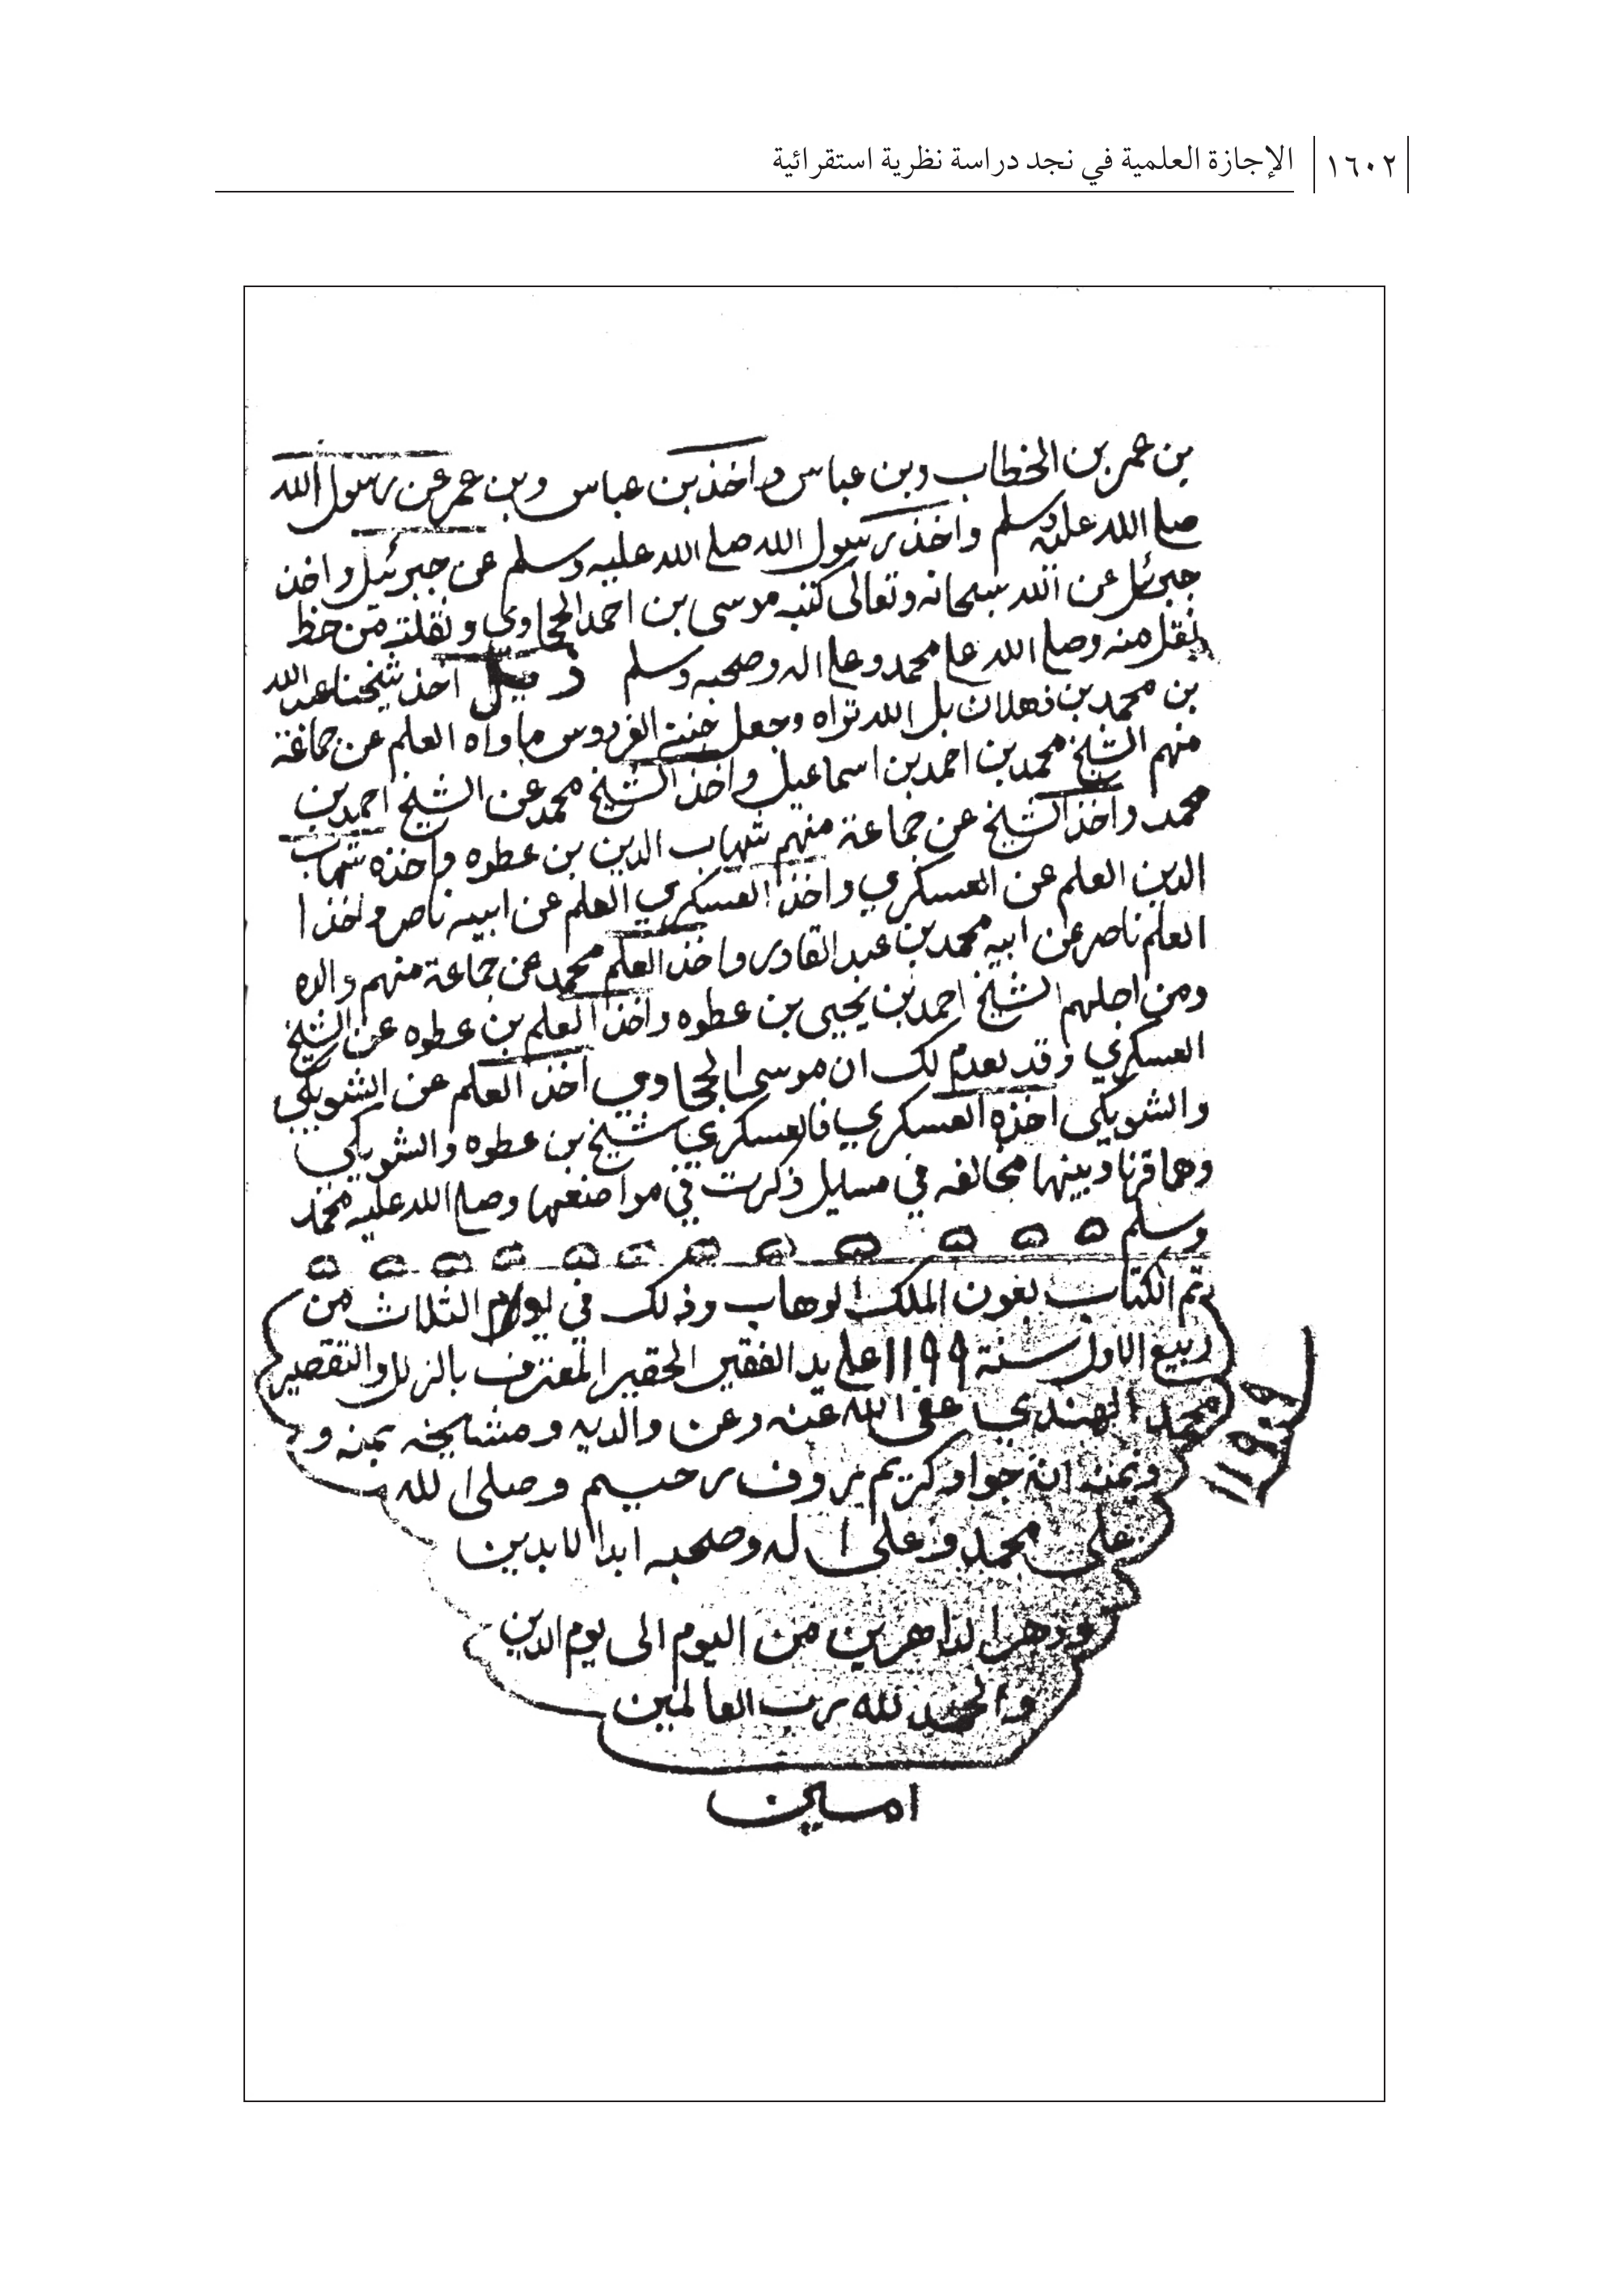 ١٦٠٢ الإجازة العلمية في نجد دراسة نظرية استقرائية
بن عمر بن الخطاب وبن عباس واخذ بن عباس وبن عمر عن رسول الله
صلا الله عليه وسلم واخذ رسول الله صلا الله عليه وسلم عن جبرئيل واخذ
جبرئل عن الله سبحانه وتعالى كتبه موسى بن احمد الحجاوي ونقلته من خط
نقل منه وصلا الله علا محمد وعلا اله وصحبه وسلم اخذ شيخنا عبد الله
بن محمد بن ذهلان بل الله ثراه وجعل جنة الفردوس ماواه العلم عن جماعة
منهم الشيخ محمد بن احمد بن اسماعيل واخذ الشيخ محمد عن الشيخ احمد بن
محمد واخذ الشيخ عن جماعة منهم شهاب الدين بن عطوه واخذه شهاب
الدين العلم عن العسكري واخذ العسكري العلم عن ابيه ناصر واخذ ا
العلم ناصر عن ابيه محمد بن عبد القادر واخذ العلم محمد عن جماعة منهم والده
ومن اجلهم الشيخ احمد بن يحيى بن عطوه واخذ العلم بن عطوه عن الشيخ
العسكري وقد تقدم لك ان موسى الحجاوي اخذ العلم عن الشويكي
والشويكي اخذه العسكري فالعسكري شيخ بن عطوه والشويكي
وهما قرنا وبينهما مخالفه في مسايل ذكرت في مواضعها وصلا الله عليه محمد
وسلم
تم الكتاب بعون الملك الوهاب وذلك في يوم الثلاث من
ربيع الاول سنة ١١٩٩ علا يد الفقير الحقير المعترف بالزلل والتقصير
محمد الهندي عفى الله عنه وعن والديه ومشايخه بمنه و
ويمنه انه جواد كريم بروف رحيم وصلى الله
١١٩٩
على محمد وعلى اله وصحبه ابدا الابدين
ودهر الداهرين من اليوم الى يوم الدين
والحمد لله رب العالمين
امين